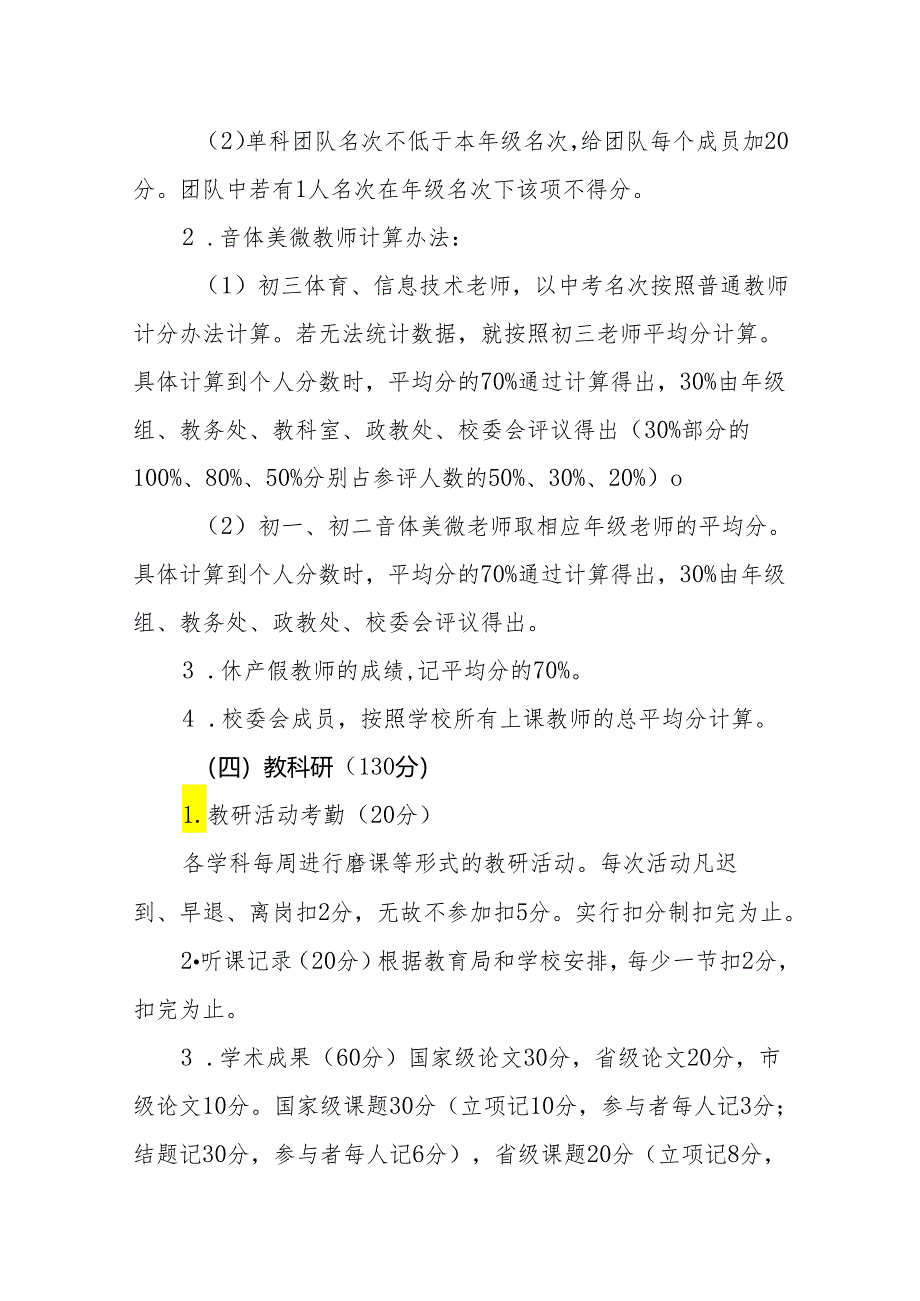 (2)单科团队名次不低于本年级名次,给团队每个成员加20
分。团队中若有1人名次在年级名次下该项不得分。
2 .音体美微教师计算办法：
（1）初三体育、信息技术老师，以中考名次按照普通教师
计分办法计算。若无法统计数据，就按照初三老师平均分计算。
具体计算到个人分数时，平均分的70%通过计算得出，30%由年级
组、教务处、教科室、政教处、校委会评议得出（30%部分的
100%、80%、50%分别占参评人数的50%、30%、20%）o
（2）初一、初二音体美微老师取相应年级老师的平均分。
具体计算到个人分数时，平均分的70%通过计算得出，30%由年级
组、教务处、政教处、校委会评议得出。
3 .休产假教师的成绩,记平均分的70%。
4 .校委会成员，按照学校所有上课教师的总平均分计算。
（四）教科研（130分）
1.教研活动考勤（20分）
各学科每周进行磨课等形式的教研活动。每次活动凡迟
到、早退、离岗扣2分，无故不参加扣5分。实行扣分制扣完为止。
2•听课记录（20分）根据教育局和学校安排，每少一节扣2分，
扣完为止。
3 .学术成果（60分）国家级论文30分，省级论文20分，市
级论文10分。国家级课题30分（立项记10分，参与者每人记3分；
结题记30分，参与者每人记6分），省级课题20分（立项记8分，